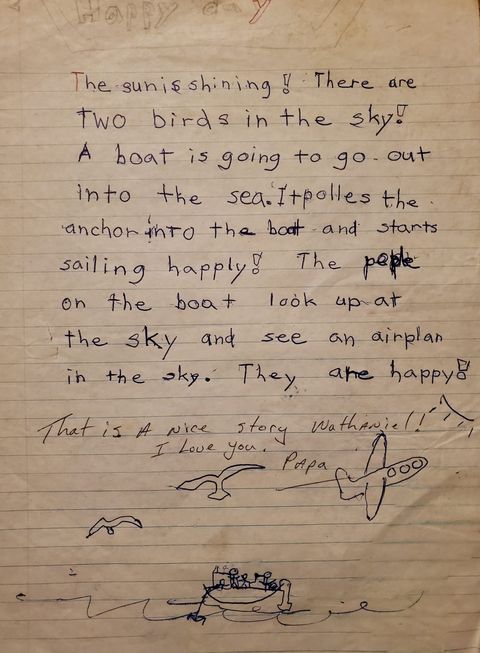 Happy day
The sun is shining! There are
two birds in the sky!
A boat is going to go out
into the sea. It polles the
anchor into the boat and starts
sailing happly! The peple
on the boat look up at
the sky and see an airplan
in the sky. They are happy!
That is A Nice story Nathaniel!
I Love you.
PAPA